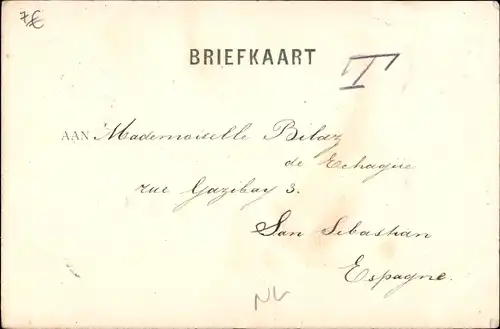 7€
BRIEFKAART
T
AAN Mademoiselle Bilaz
de Echagüe
rue Gazibay 3.
San Sebastian
Espagne.
NL